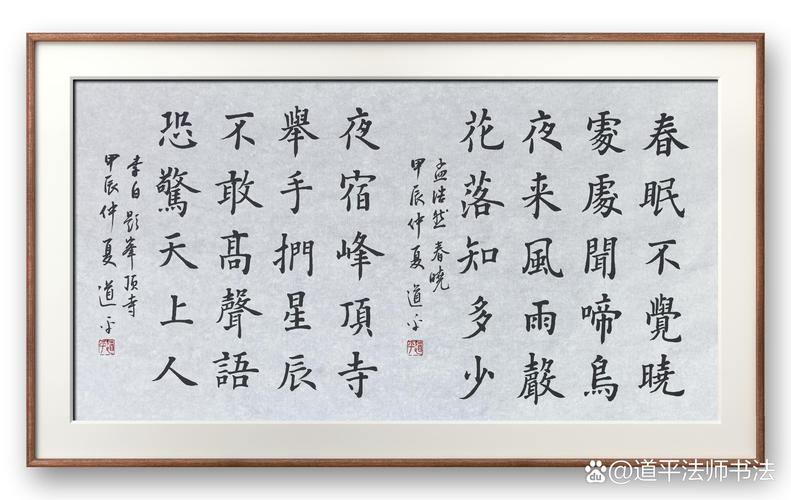 春眠不覺曉
處處聞啼鳥
夜来風雨聲
花落知多少
孟浩然春曉
甲辰仲夏道平
夜宿峰頂寺
舉手捫星辰
不敢髙聲語
恐驚天上人
李白题峯顶寺
甲辰仲夏道平
du @道平法师书法